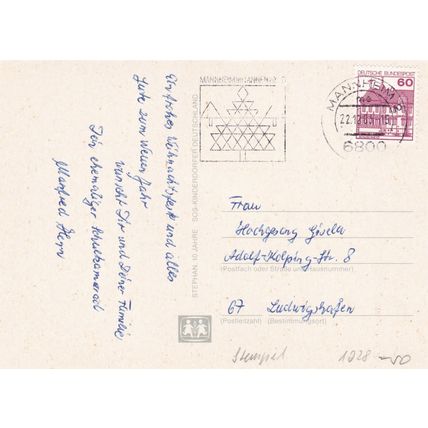 Ein frohes Weihnachtsfest und alles
Gute zum neuen Jahr
wünscht Dir und Deiner Familie
Dein ehemaliger Schulkamerad
Manfred Horn
STEPHAN, 10 JAHRE SOS-KINDERDÖRFER DEUTSCHLAND
MANNHEIM
DEUTSCHE BUNDESPOST
60
MANNHEIM
22.12.83-18
6800
Frau
Hochgesang Gisela
Adolf-Kolping-Str. 8
(Postfach oder Straße und Hausnummer)
67 Ludwigshafen
(Postleitzahl) (Bestimmungsort)
Stempel
1028 -50